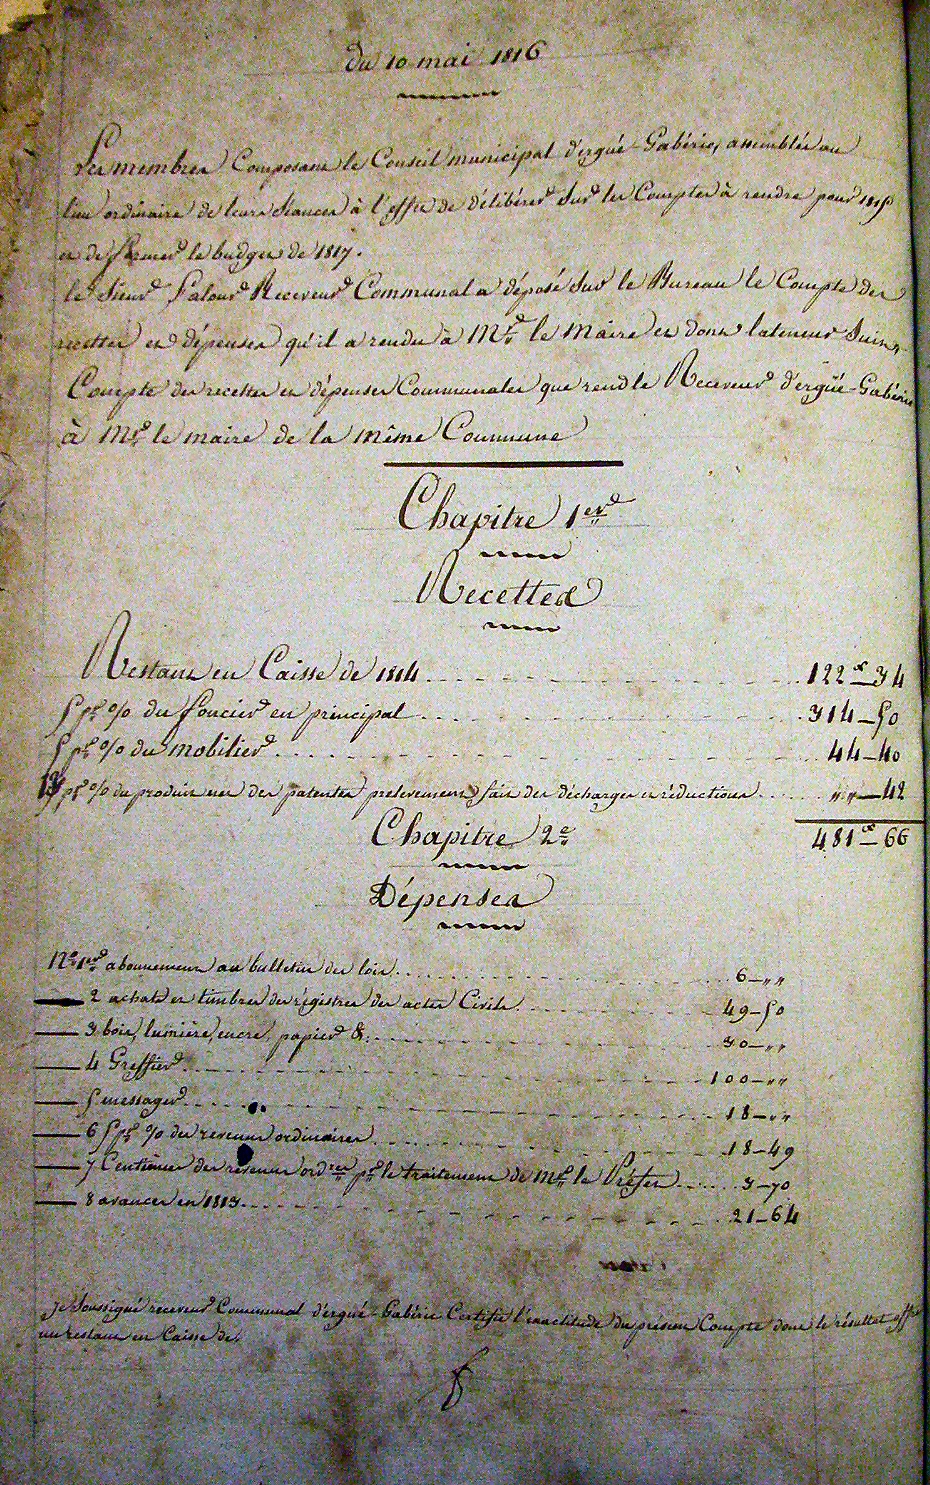 du 10 mai 1816
Les membres Composant le Conseil municipal d'ergué-Gabéric, assemblés au
lieu ordinaire de leurs séances à l'effet de délibérer sur les Comptes à rendre pour 1815
et de former le budget de 1817.
le Sieur Lalour Receveur Communal a déposé sur le Bureau le Compte des
recettes et dépenses qu'il a rendu à Mr le Maire et dont la teneur Suit,
Compte des recettes et dépenses Communales que rend le Receveur d'ergüé-Gabéric
à Mr le maire de la même Commune
Chapitre 1er
Recettes
Restant en Caisse de 1814 122 - 34
5 pr % du foncier en principal 314 - 50
5 pr % du mobilier 44 - 40
pr % du produit net des patentes prelevement fait des décharges et réductions „ „ - 42
481 - 66
Chapitre 2e
Dépenses
No 1er abonnement au bulletin des lois 6 - „ „
2 achats et timbres des régistres des actes Civils 49 - 50
3 bois, lumière, encre, papier &. 30 - „ „
4 Greffier 100 - „ „
5 messager 18 - „ „
6 5 pr % des revenus ordinaires 18 - 49
7 Centimes des revenus ordres pr le traitement de Mr le Préfet 3 - 70
8 avances en 1813 21 - 64
Je Soussigné receveur Communal d'ergué-Gabéric Certifie l'exactitude du présent Compte dont le résultat offre
un restant en Caisse de.